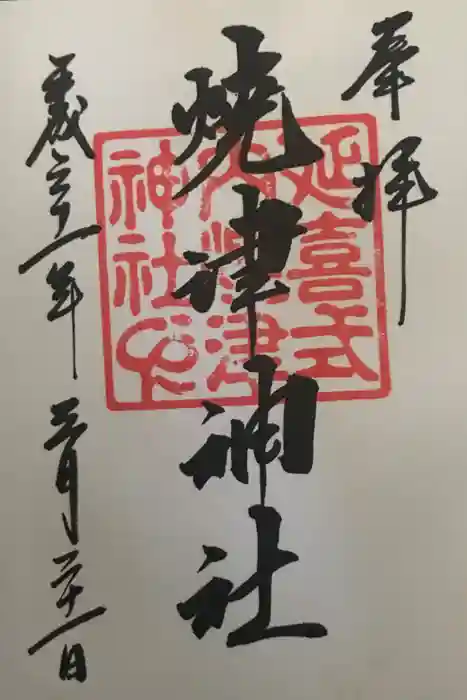 奉拝
延喜式
内焼津
神社
焼津神社
平成三十一年 三月二十一日